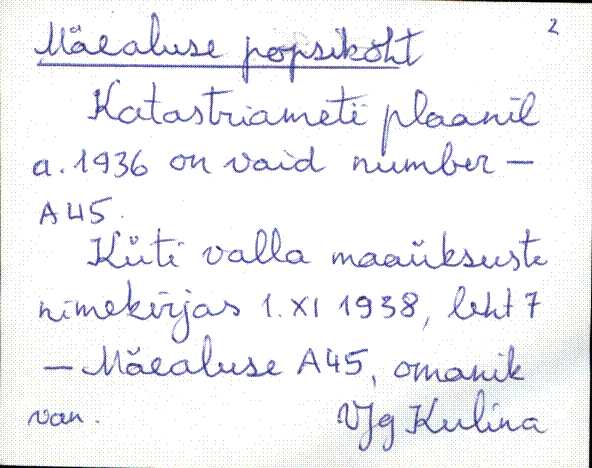 2
Mäealuse popsikoht
Katastriameti plaanil
a. 1936 on vaid number –
A45.
Küti valla maaüksuste
nimekirjas 1. XI 1938, leht 7
– Mäealuse A45, omanik
van. Kulina